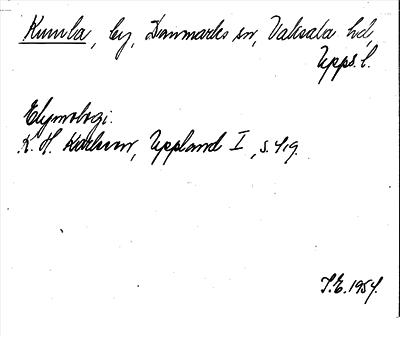 Kumla, by, Danmarks sn, Vaksala hd,
Upps. l.
Etymologi.
K. H. Karlsson, Uppland I, s. 419.
I.E. 1954.